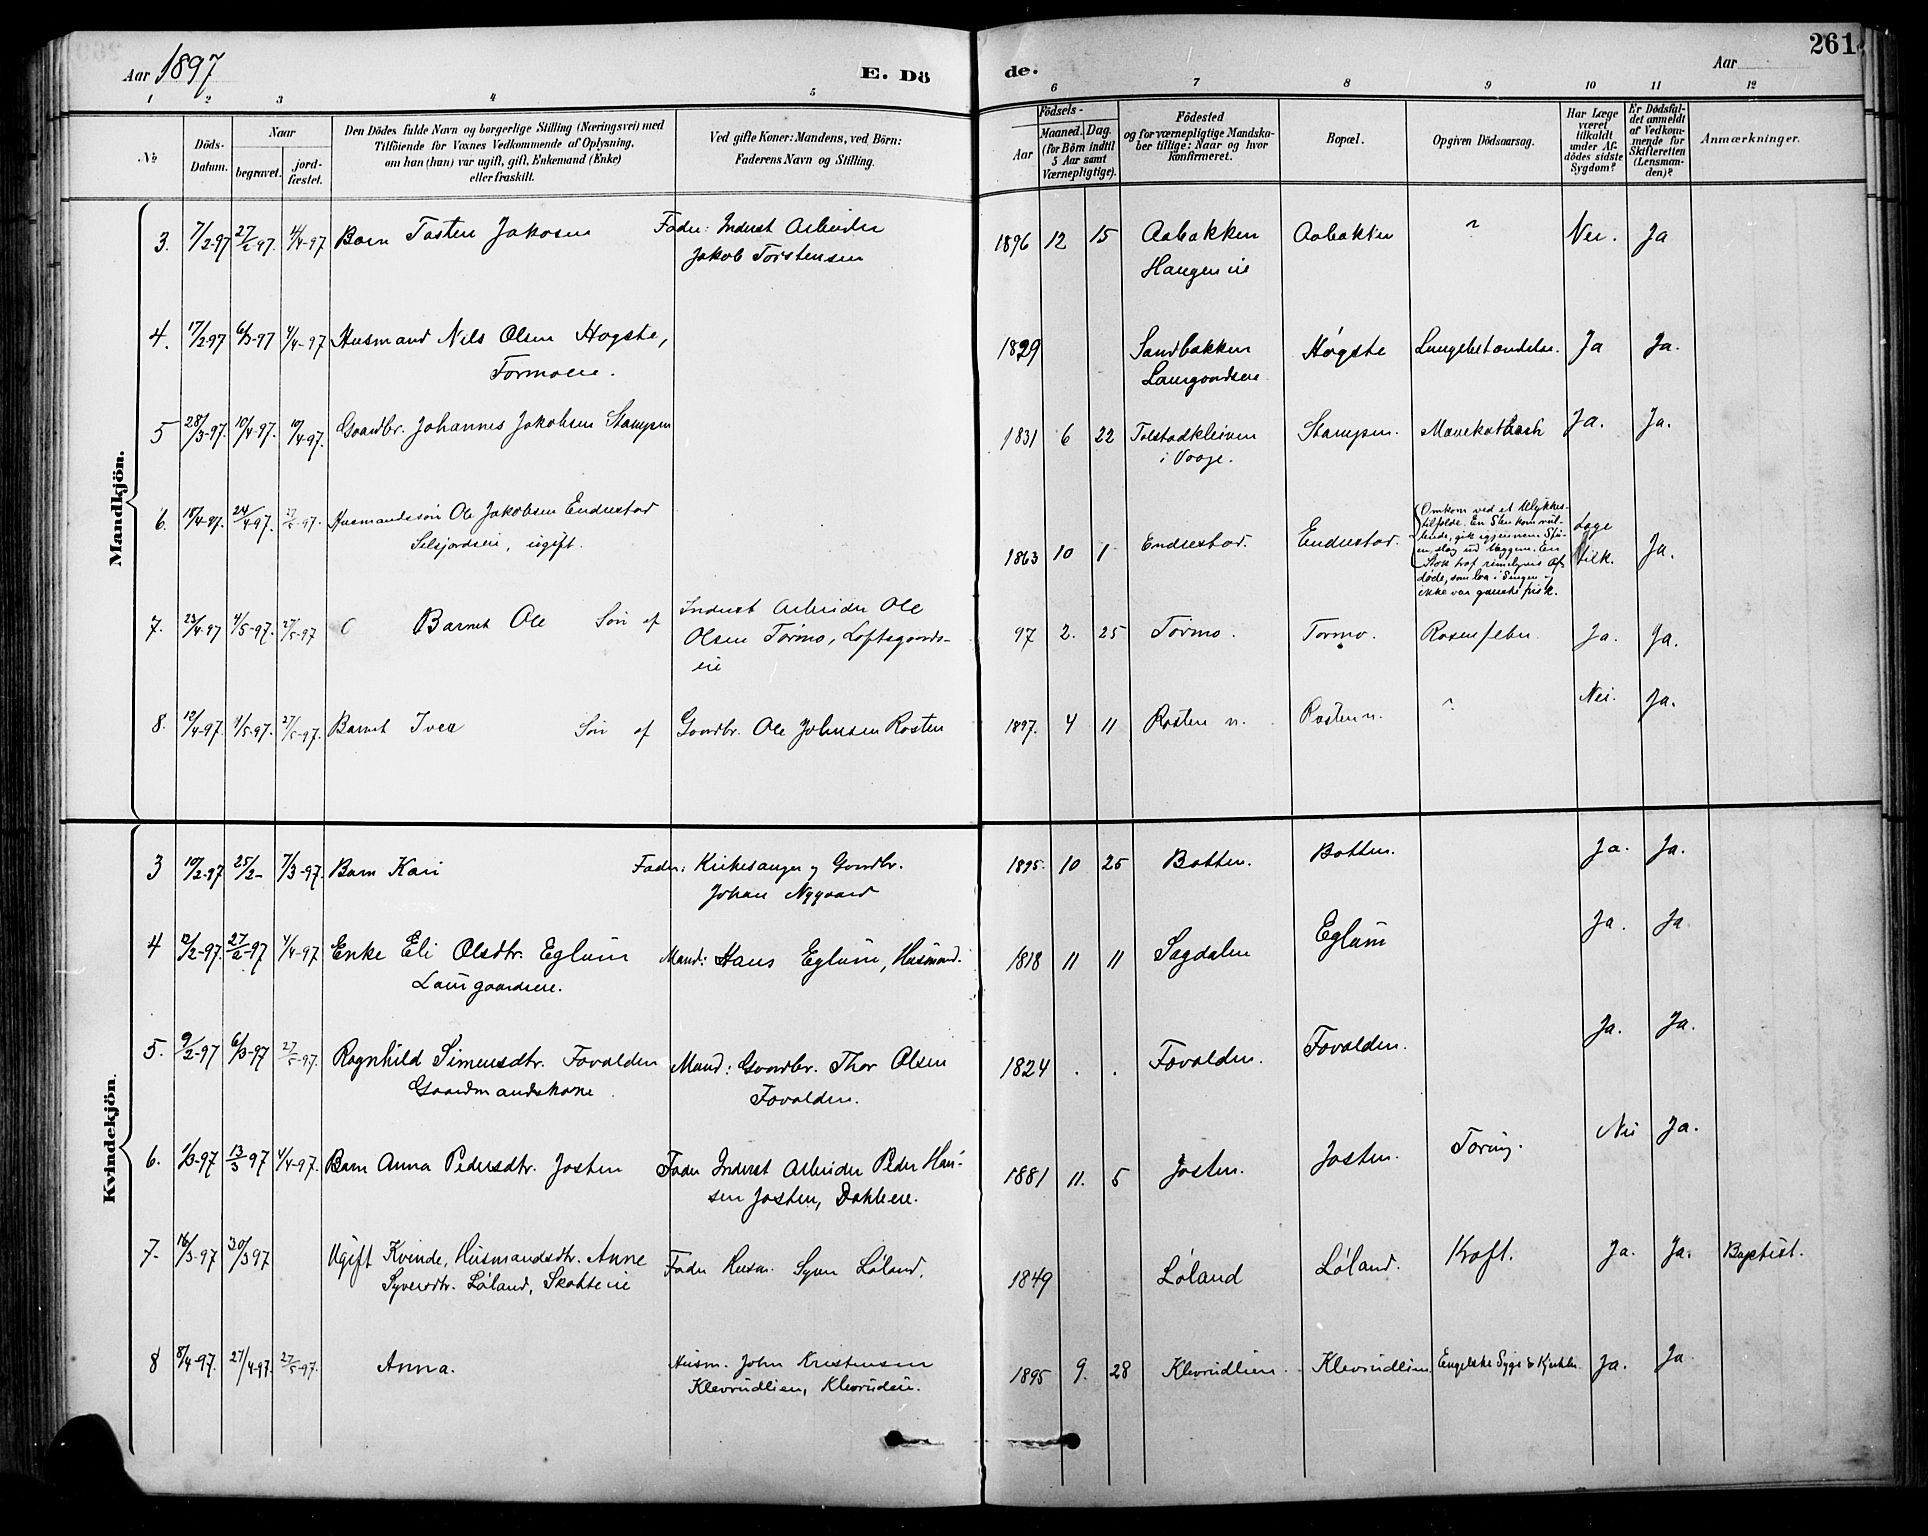 261.
Aar 1897
E. Dö
de.
Aar
1 2 3 4 5 6 7 8 9 10 11 12
No
Döds-Datum.
Naar
begravet. jordfæstet.
Den Dödes fulde Navn og borgerlige Stilling (Næringsvei) med
Tilföiende for Voxnes Vedkommende af Oplysning,
om han (hun) var ugift, gift, Enkemand (Enke)
eller fraskilt.
Ved gifte Koner: Mandens, ved Börn:
Faderens Navn og Stilling.
Födsels-
Aar
Maaned. Dag.
(for Börn indtil
5 Aar samt
Værnepligtige).
Födested
og for værnepligtige Mandskaber tillige: Naar og hvor
konfirmeret.
Bopæl.
Opgiven Dödsaarsag.
Har Læge
været
tilkaldt
under Afdödes sidste
Sygdom?
Er Dödsfaldet anmeldt
af Vedkommende for
Skifteretten
(Lensmanden)?
Anmærkninger.
Mandkjön.
3. 7/2-97 27/2 97. 4/4-97 Barn Tosten Jakosen Fader: Inderst Arbeider 1896 12 15 Aabakken Aabakken ~ Nei. Ja
Jakob Torstensen Haugen eie
4. 17/2-97 6/3-97 4/4-97 Husmand Nils Olsen Hogste, 1829 Sandbakken Høgste Lungebetændelse. Ja Ja.
Formoeie. Laurgaardseie
5 28/3-97. 10/4-97. 10/4-97. Gaardbr. Johannes Jakobsen Stampen 1831 6 22 Tolstadkleiven Stampen. Mavekatharh Ja. Ja.
i Vaage.
6. 18/4-97. 24/4-97. 27/5-97. Husmandssøn Ole Jakobsen Endrestad 1863 10 1 Endrestad. Endrestad. Omkom ved et Ulykkes-
tilfælde. En Sten kom rul-
lende, gik igjennem Stu-
en, slog ud Væggen. En
Stok traf rimeligvis Af-
døde, som laa i Sengen og
ikke var ganske frisk. Læge
tilk. Ja.
Selsjordseie, ugift.
7. 23/4-97 4/5-97. 27/5-97 Barnet Ole Søn af Inderst Arbeider Ole 97 2. 25 Formo. Formo. Rosenfeber Ja. Ja.
Olsen Formo, Loftsgaards-
eie
8. 12/4-97. 4/5-97. 27/5-97. Barnet Iver Søn af Gaardbr. Ole Johnsen Rosten 1897. 4 11 Rosten n. Rosten n. ~ Nei. Ja.
Kvindekjön.
3 10/2-97 25/2- 7/3-97. Barn Kari Fader: Kirkesanger og Gaardbr. 1895. 10 25 Botten. Botten. Ja. Ja.
Johan Nygaard
4 12/2-97. 27/2-97 4/4-97 Enke Eli Olsdtr. Eglum Mand: Hans Eglum, Husmand. 1818 11 11 Sagdalen Eglum Ja. Ja
Laurgaardseie.
5. 9/2-97 6/3-97 27/5-97. Ragnhild Simensdtr. Fovolden Mand: Gaardbr. Thor Olsen 1824 . . Fovolden. Fovolden. Ja. Ja.
Gaardmandskone Fovolden.
6. 1/3-97 13/3 97 4/4-97. Barn Anna Pedersdtr. Josten Fader Inderst Arbeider Peder Han- 1881 11. 5 Josten. Josten. Tæring. Nei Ja.
sen Josten, Dahleeie.
7- 16/3-97 30/3 97 Ugift Kvinde, Husmandsdtr. Anne Fader Husm. Syver Løland, 1849 Løland Løland. Kræft. Ja. Ja. Baptist.
Syversdtr. Løland, Skotteeie
8 8/4-97. 27/4-97. 27/5-97. Anna. Husm. John Kristensen 1895 9. 28 Klevrudlien. Klevrudlien Engelske Syge & Kighh. Ja. Ja
Klevrudlien, Klevrudeie.